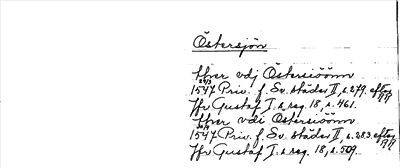 Östersjön
Öfver vdj Östersiöönn
24/3
1547 Priv. f. Sv. städer II, s. 279. efter
Jfr Gustaf I:s reg. 18, s. 461.
Öfver vdi Östersiöönn
1547 Priv. f. Sv. städer II, s. 283. efter
Jfr Gustaf I:s reg. 18, s. 509.